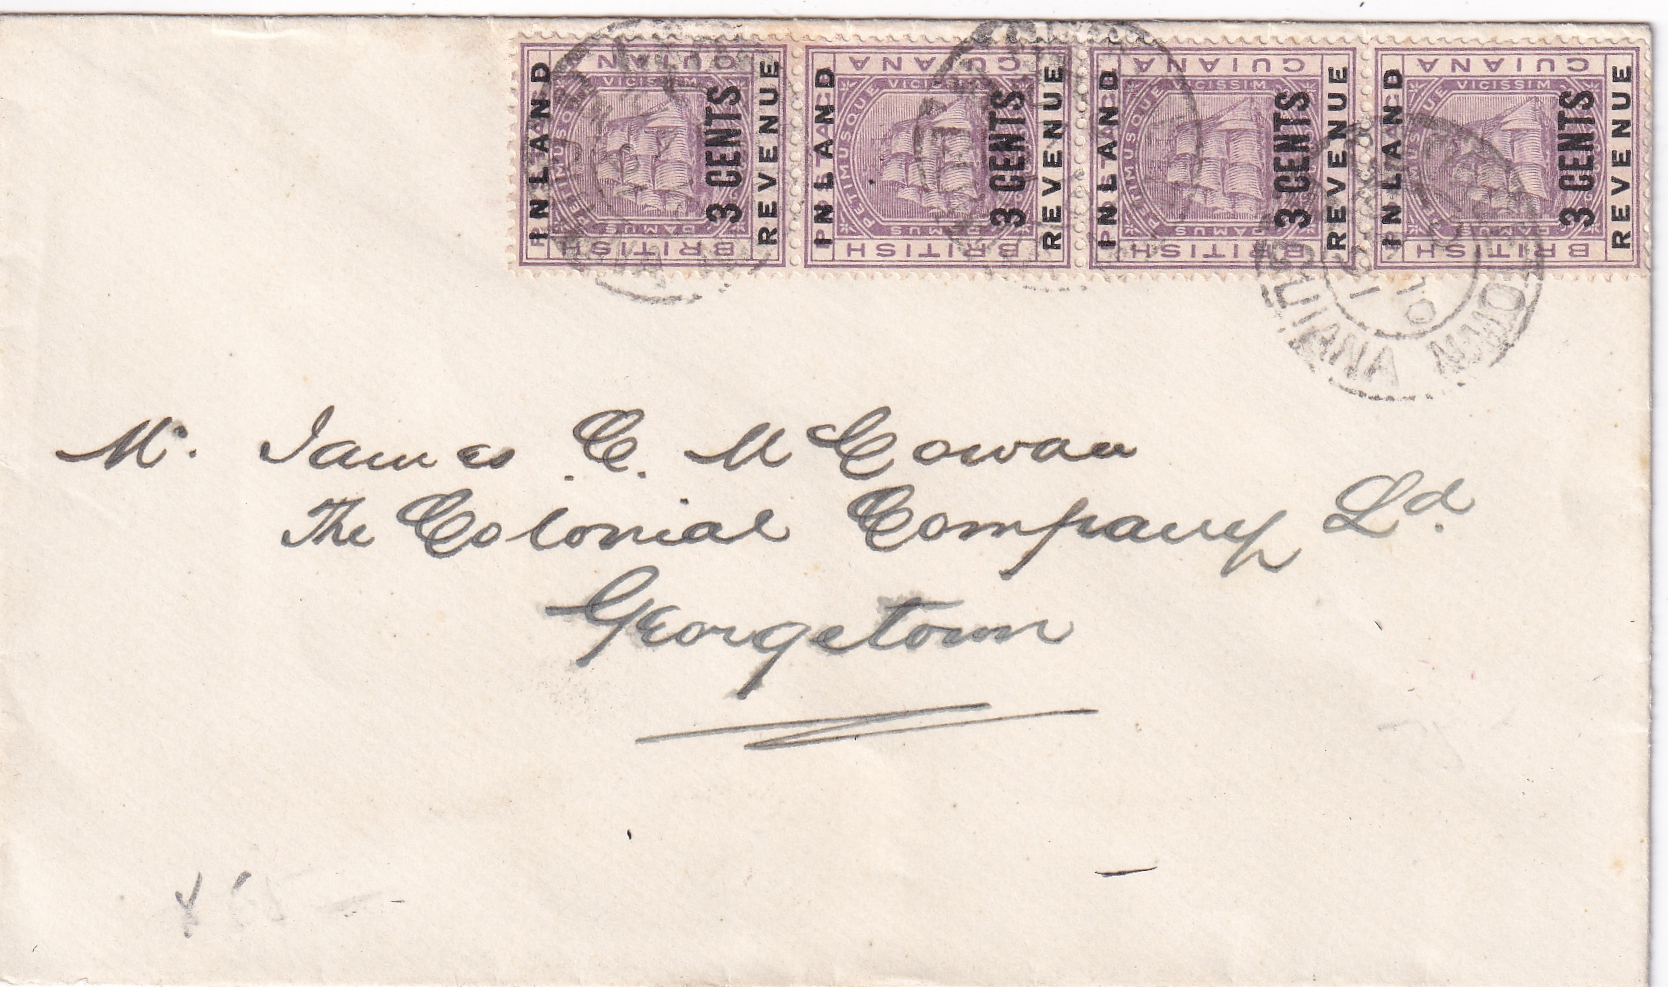 INLAND 3 CENTS REVENUE INLAND 3 CENTS REVENUE INLAND 3 CENTS REVENUE INLAND 3 CENTS REVENUE
GUIANA GUIANA GUIANA GUIANA
PETIMUSQUE VICISSIM PETIMUSQUE VICISSIM PETIMUSQUE VICISSIM PETIMUSQUE VICISSIM
DAMUS DAMUS DAMUS DAMUS
BRITISH BRITISH BRITISH BRITISH
GUIANA
Mr. James C. McCowan
The Colonial Company Ld.
Georgetown